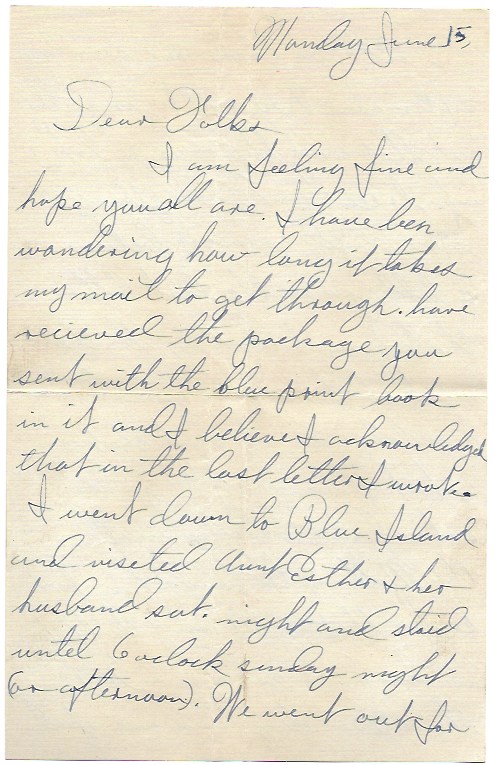 Monday June 15,
Dear Folks
I am feeling fine and
hope you all are. I have ben
wandering how long it takes
my mail to get through. have
recieved the package you
sent with the blue print book
in it and I believe I acknowledged
that in the last letter I wrote.
I went down to Blue Island
and viseted Aunt Esther & her
husband sat. night and staid
until 6 oclock sunday night
(or afternoon). We went out for